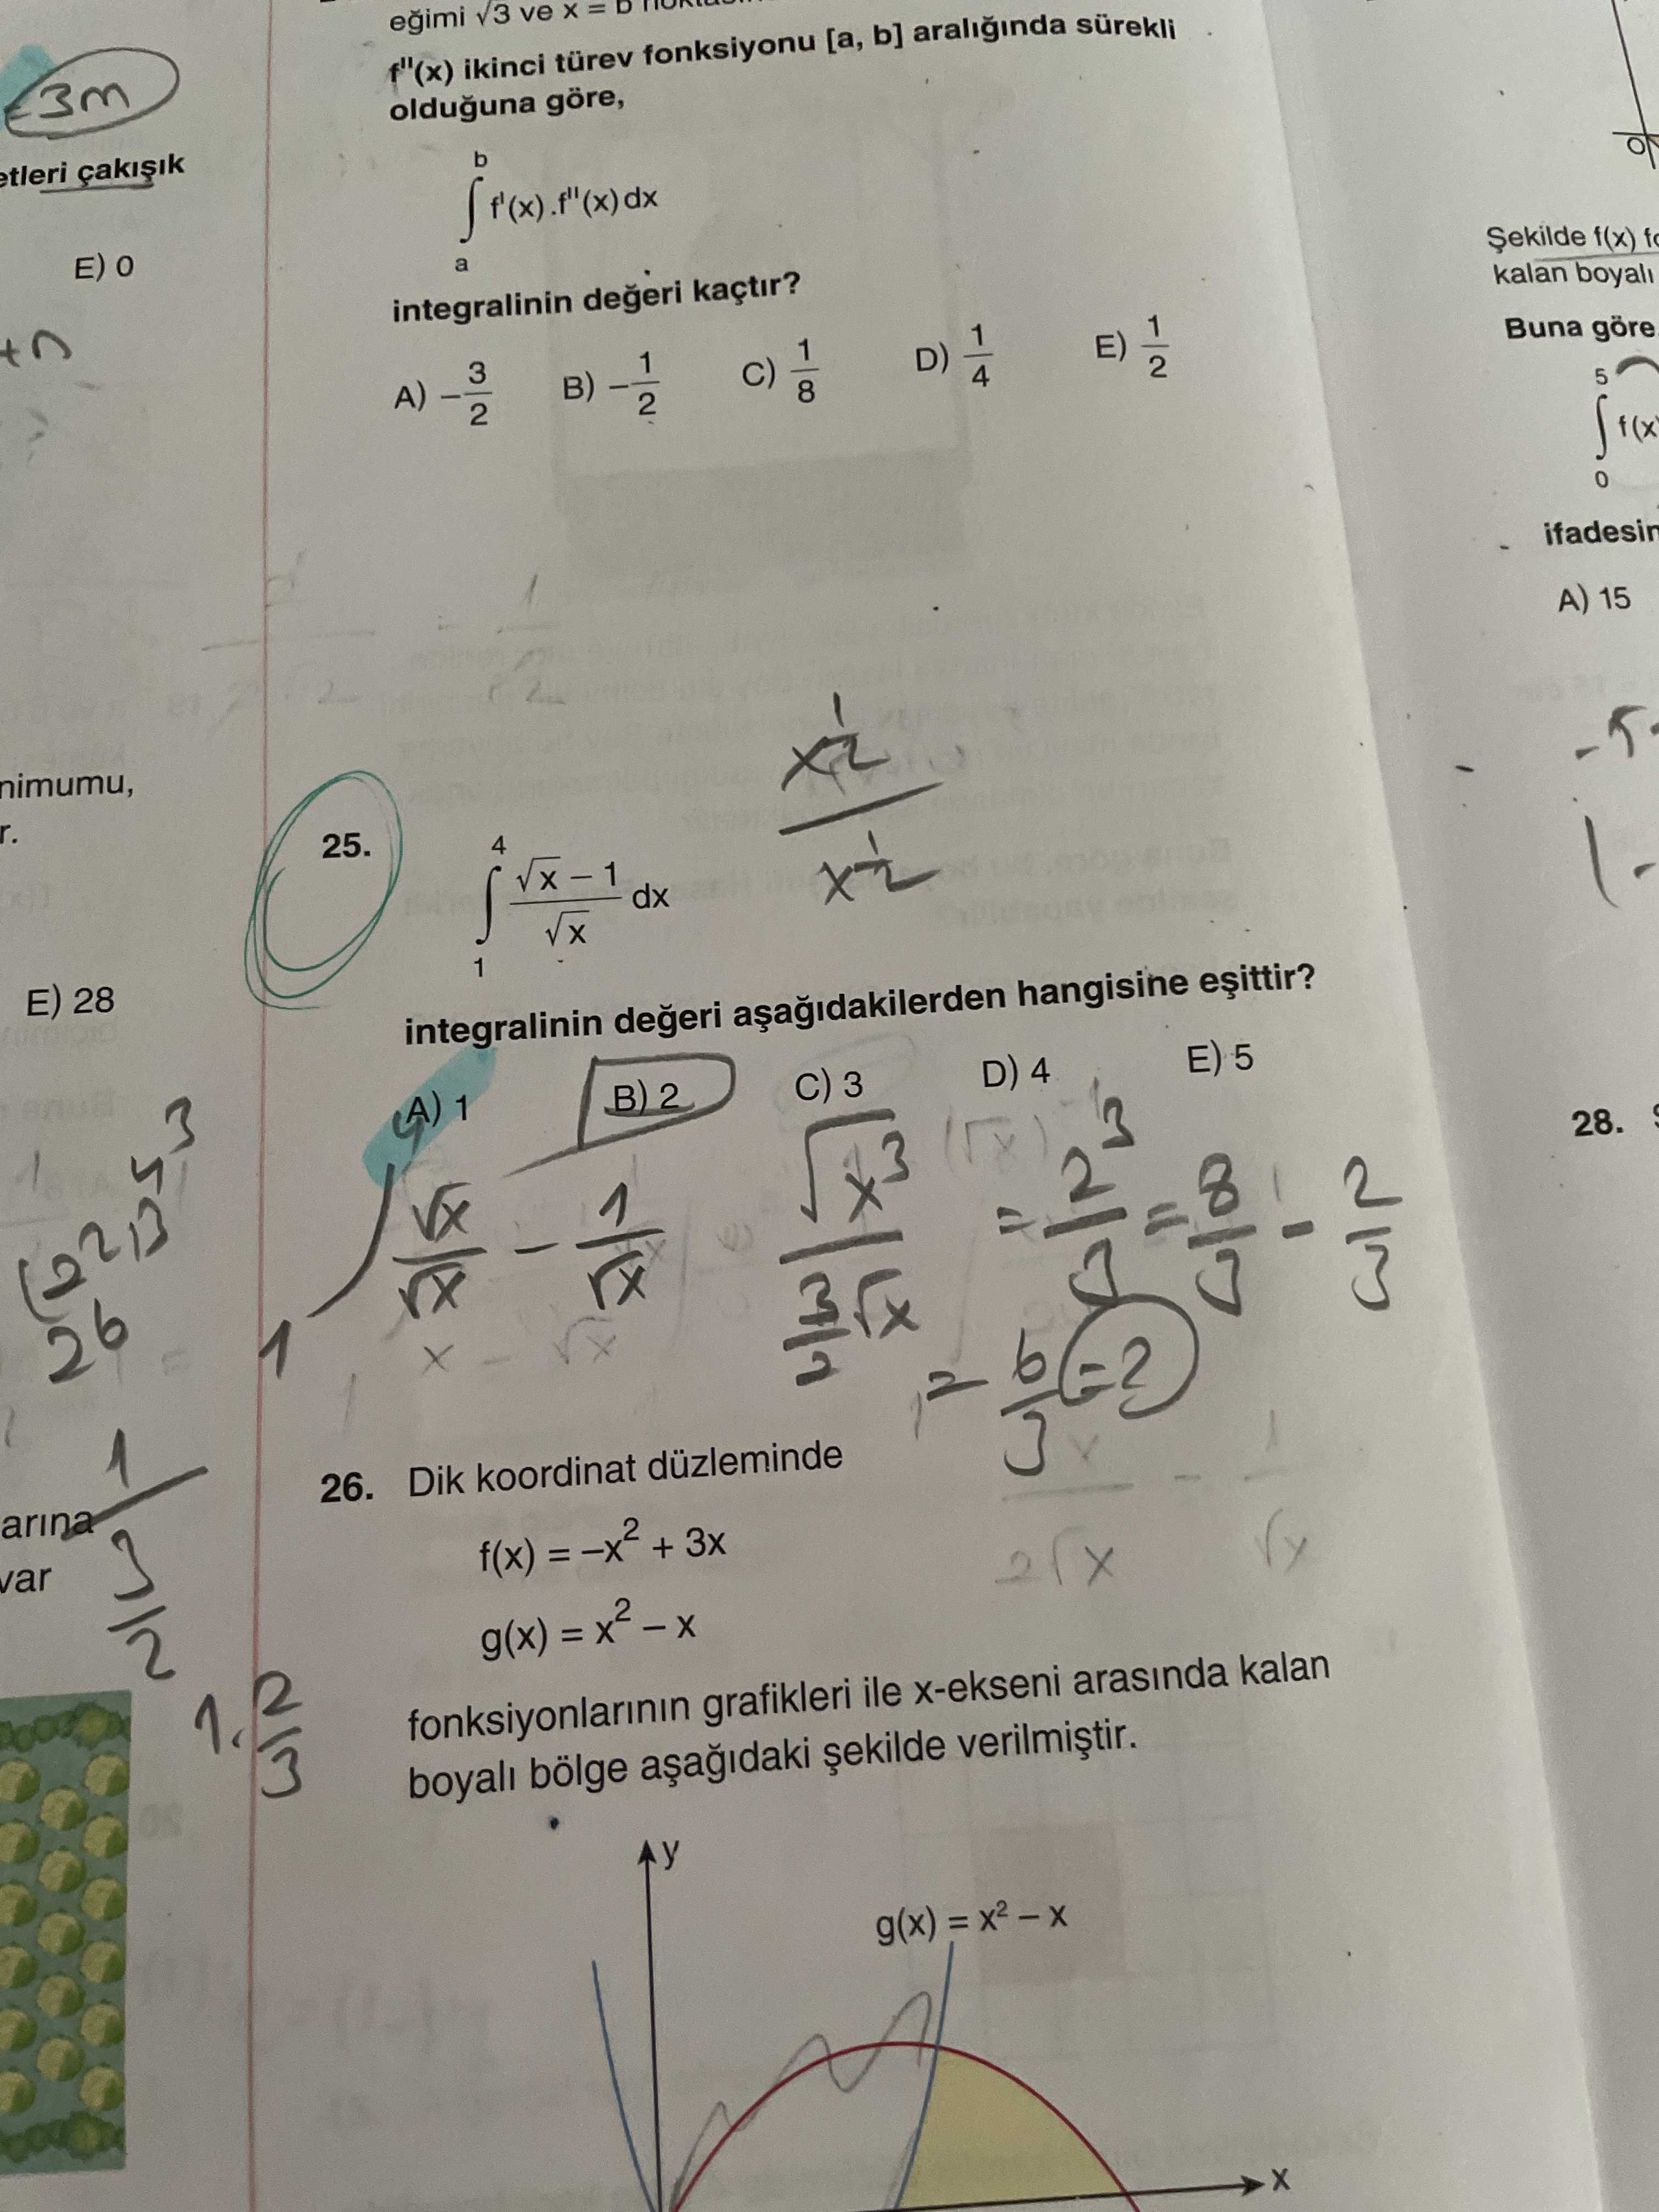 3m
etleri çakışık
E) 0
+n
nimumu,
r.
E) 28
arına
var
eğimi √3 ve x = b
f''(x) ikinci türev fonksiyonu [a, b] aralığında sürekli
olduğuna göre,
b
∫ f'(x).f''(x) dx
a
integralinin değeri kaçtır?
A) −3/2 B) −1/2 C) 1/8 D) 1/4 E) 1/2
x^1/2
x^1/2
25.
4
∫ (√x − 1)/√x dx
1
integralinin değeri aşağıdakilerden hangisine eşittir?
A) 1 B) 2 C) 3 D) 4 E) 5
4
∫ √x/√x − 1/√x
1
x − √x
√x³ / (3/2 √x) = 2³/3 = 8/3 − 2/3
= 6/3 = 2
x/2√x − 1/√x
2⁶
1/(3/2)
1.2/3
26. Dik koordinat düzleminde
f(x) = −x² + 3x
g(x) = x² − x
fonksiyonlarının grafikleri ile x-ekseni arasında kalan
boyalı bölge aşağıdaki şekilde verilmiştir.
y
g(x) = x² − x
x
O
Şekilde f(x)
kalan boyalı
Buna göre
5
∫ f(x)
0
A) 15
28.